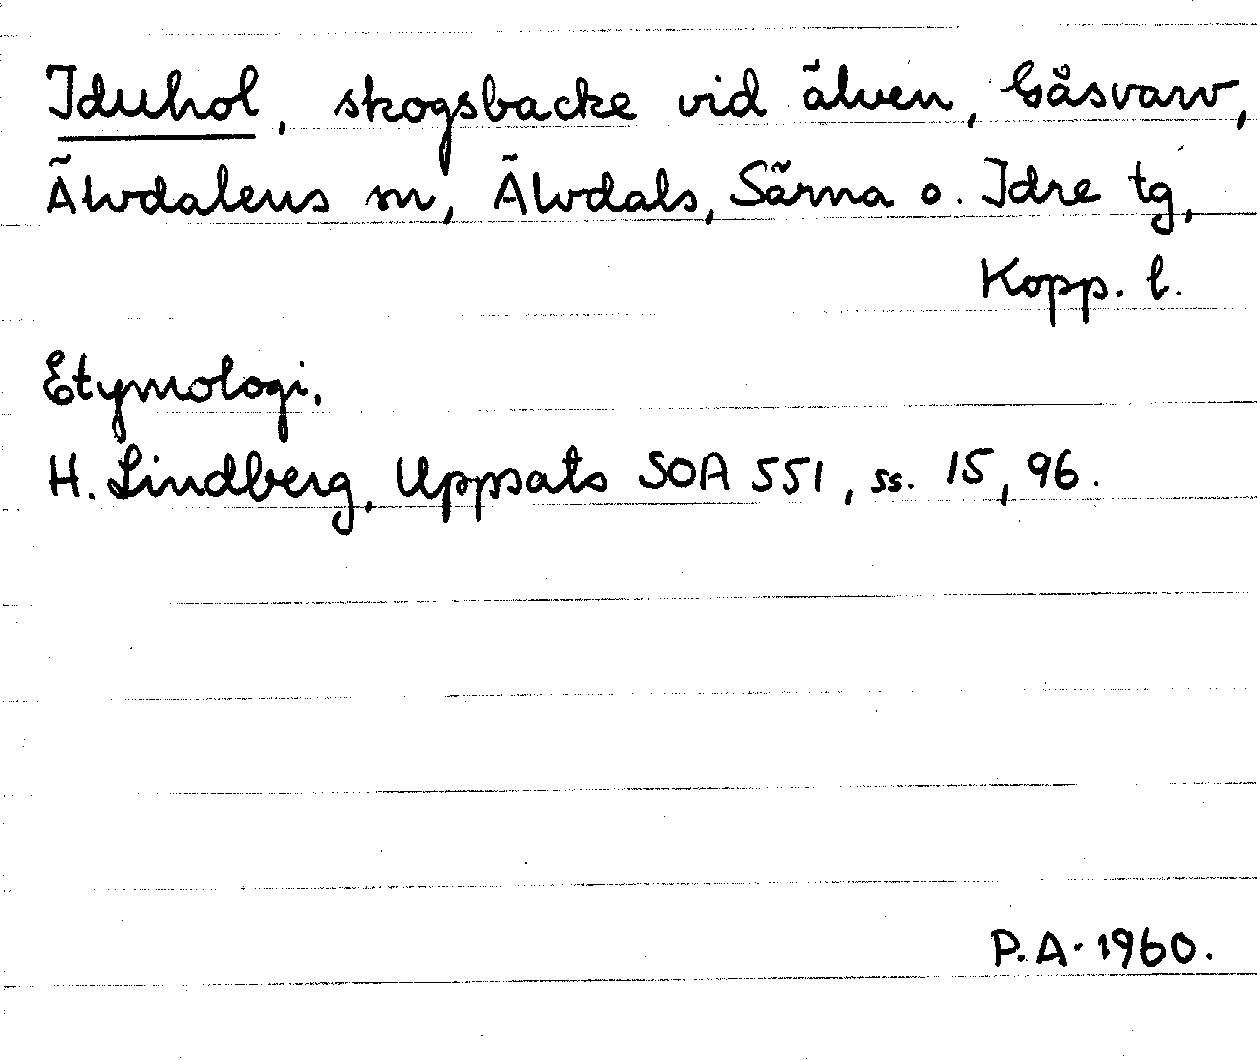 Iduhol, skogsbacke vid älven, Gåsvarv,
Älvdalens sn, Älvdals, Särna o. Idre tg,
Kopp. l.
Etymologi.
H. Lindberg, Uppsats SOA 551, ss. 15, 96.
P.A. 1960.